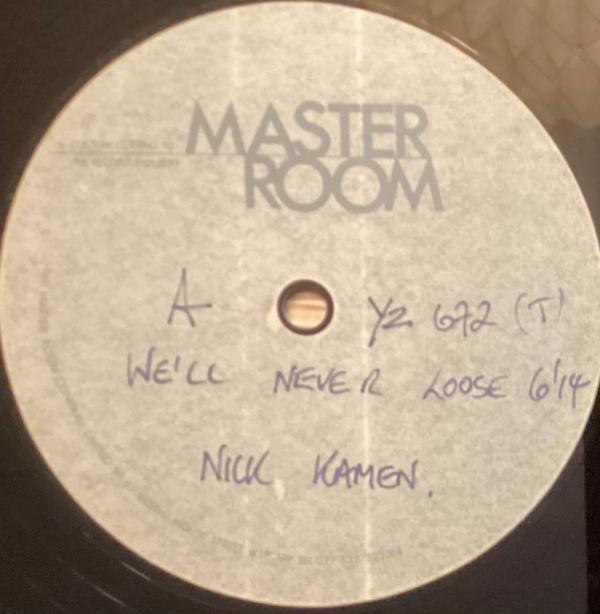 MASTER
ROOM
A YZ 672 (T)
WE'LL NEVER LOOSE 6'14
NICK KAMEN.